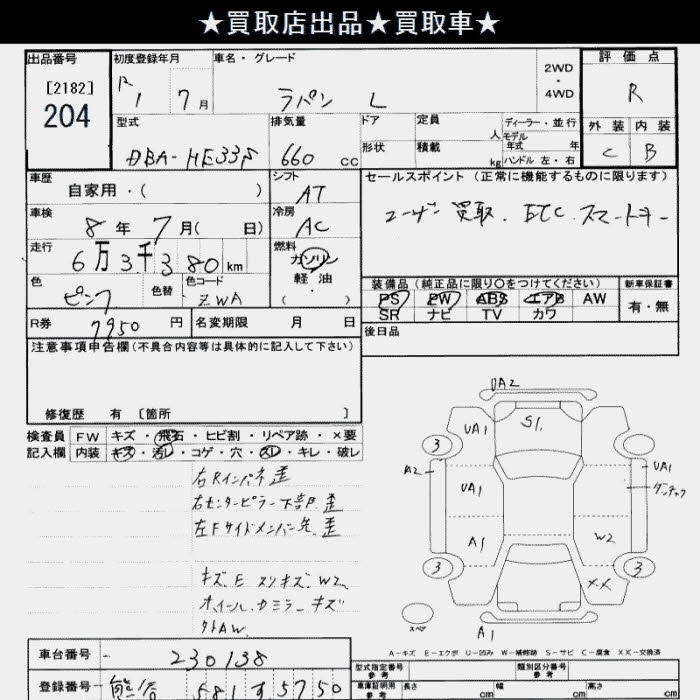 ★買取店出品★買取車★
出品番号
[2182]
204
初度登録年月
R 1 7 月
車名・グレード
ラパン L
2WD
・
4WD
評価点
R
外装 内装
C B
型式
DBA-HE33S
排気量
660 cc
ドア
形状
定員 人
積載 kg
ディーラー・並行
モデル年式 年
ハンドル 左・右
車歴
自家用・( )
シフト
AT
セールスポイント (正常に機能するものに限ります)
ユーザー買取. ETC. スマートキー
車検
8 年 7 月( 日)
冷房
AC
走行
6 万 3 千 3 80 km
燃料
ガソリン
軽油
( ・ )
色
ピンク
色替
色コード
ZWA
装備品 (純正品に限り○をつけてください)
PS PW ABS エアB AW
SR ナビ TV カワ
新車保証書
有・無
R券 7950 円
名変期限 月 日
後日品
注意事項申告欄(不具合内容等は具体的に記入して下さい)
修復歴 有 〔箇所 〕
検査員
記入欄
FW キズ・飛石・ヒビ割・リペア跡・×要
内装 キズ・汚レ・コゲ・穴・スレ・キレ・破レ
右Rインパネ歪
右センターピラー下部歪
左Fサイドメンバー先歪
キズ.E スリキズ. W2
ホイール.カミラーキズ
外AW.
UA2
UA1
S1.
3
A2
UA1
UA1
ゲンチャク
A1
W2
3
3
XX
スペア
A1
A-キズ E-エクボ U-凹み W-補修跡 S-サビ C-腐食 XX-交換済
車台番号 - 230138
登録番号 熊谷 581 す 5750
型式指定番号
参考
類別区分番号
参考
車庫証明用
参考
長さ cm
幅 cm
高さ cm